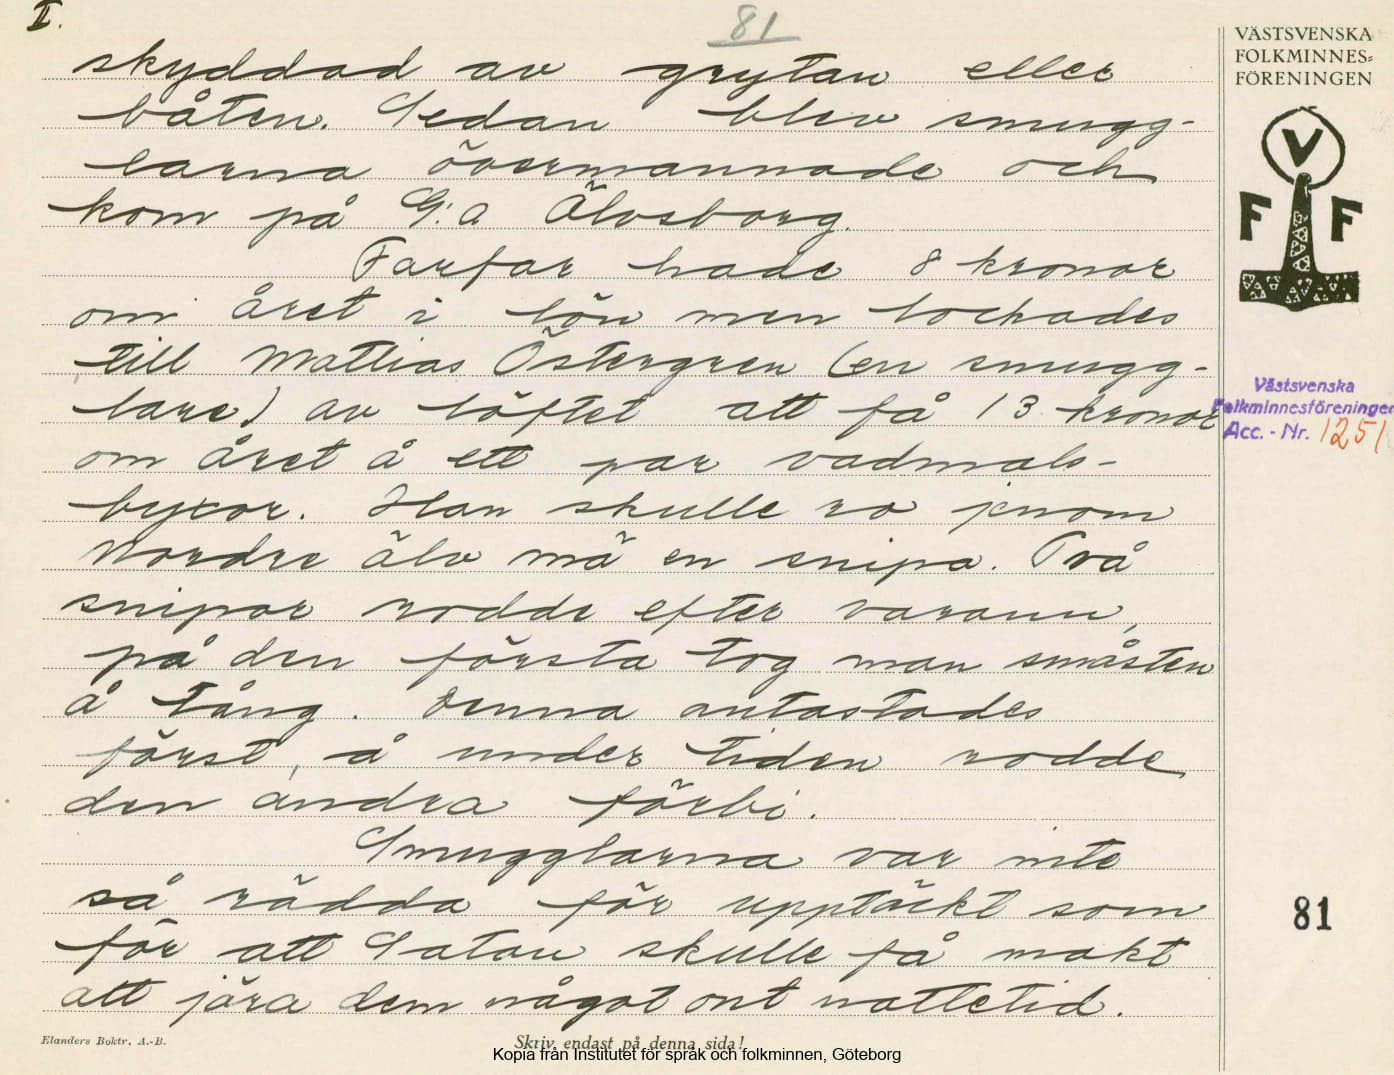 II.
81
skyddad av grytan eller
båten. Sedan blev smugg-
larna övermannade och
kom på G:a Älvsborg.
Farfar hade 8 kronor
om året i lön men lockades
till Mattias Östergren (en smugg-
lare) av löftet att få 13 kronor
om året å ett par vadmals-
byxor. Han skulle ro jenom
Nordre älv mä en snipa. Två
snipor rodde efter varann,
på den första tog man småsten
å tång. Denna antastades
först, å under tiden rodde
den andra förbi.
Smugglarna var inte
så rädda för upptäckt som
för att Satan skulle få makt
att jöra dem något ont nattetid.
VÄSTSVENSKA
FOLKMINNES-
FÖRENINGEN
V
F F
Västsvenska
Folkminnesföreningen
Acc. - Nr. 1251
81
Elanders Boktr. A.-B.
Skriv endast på denna sida!
Kopia från Institutet för språk och folkminnen, Göteborg